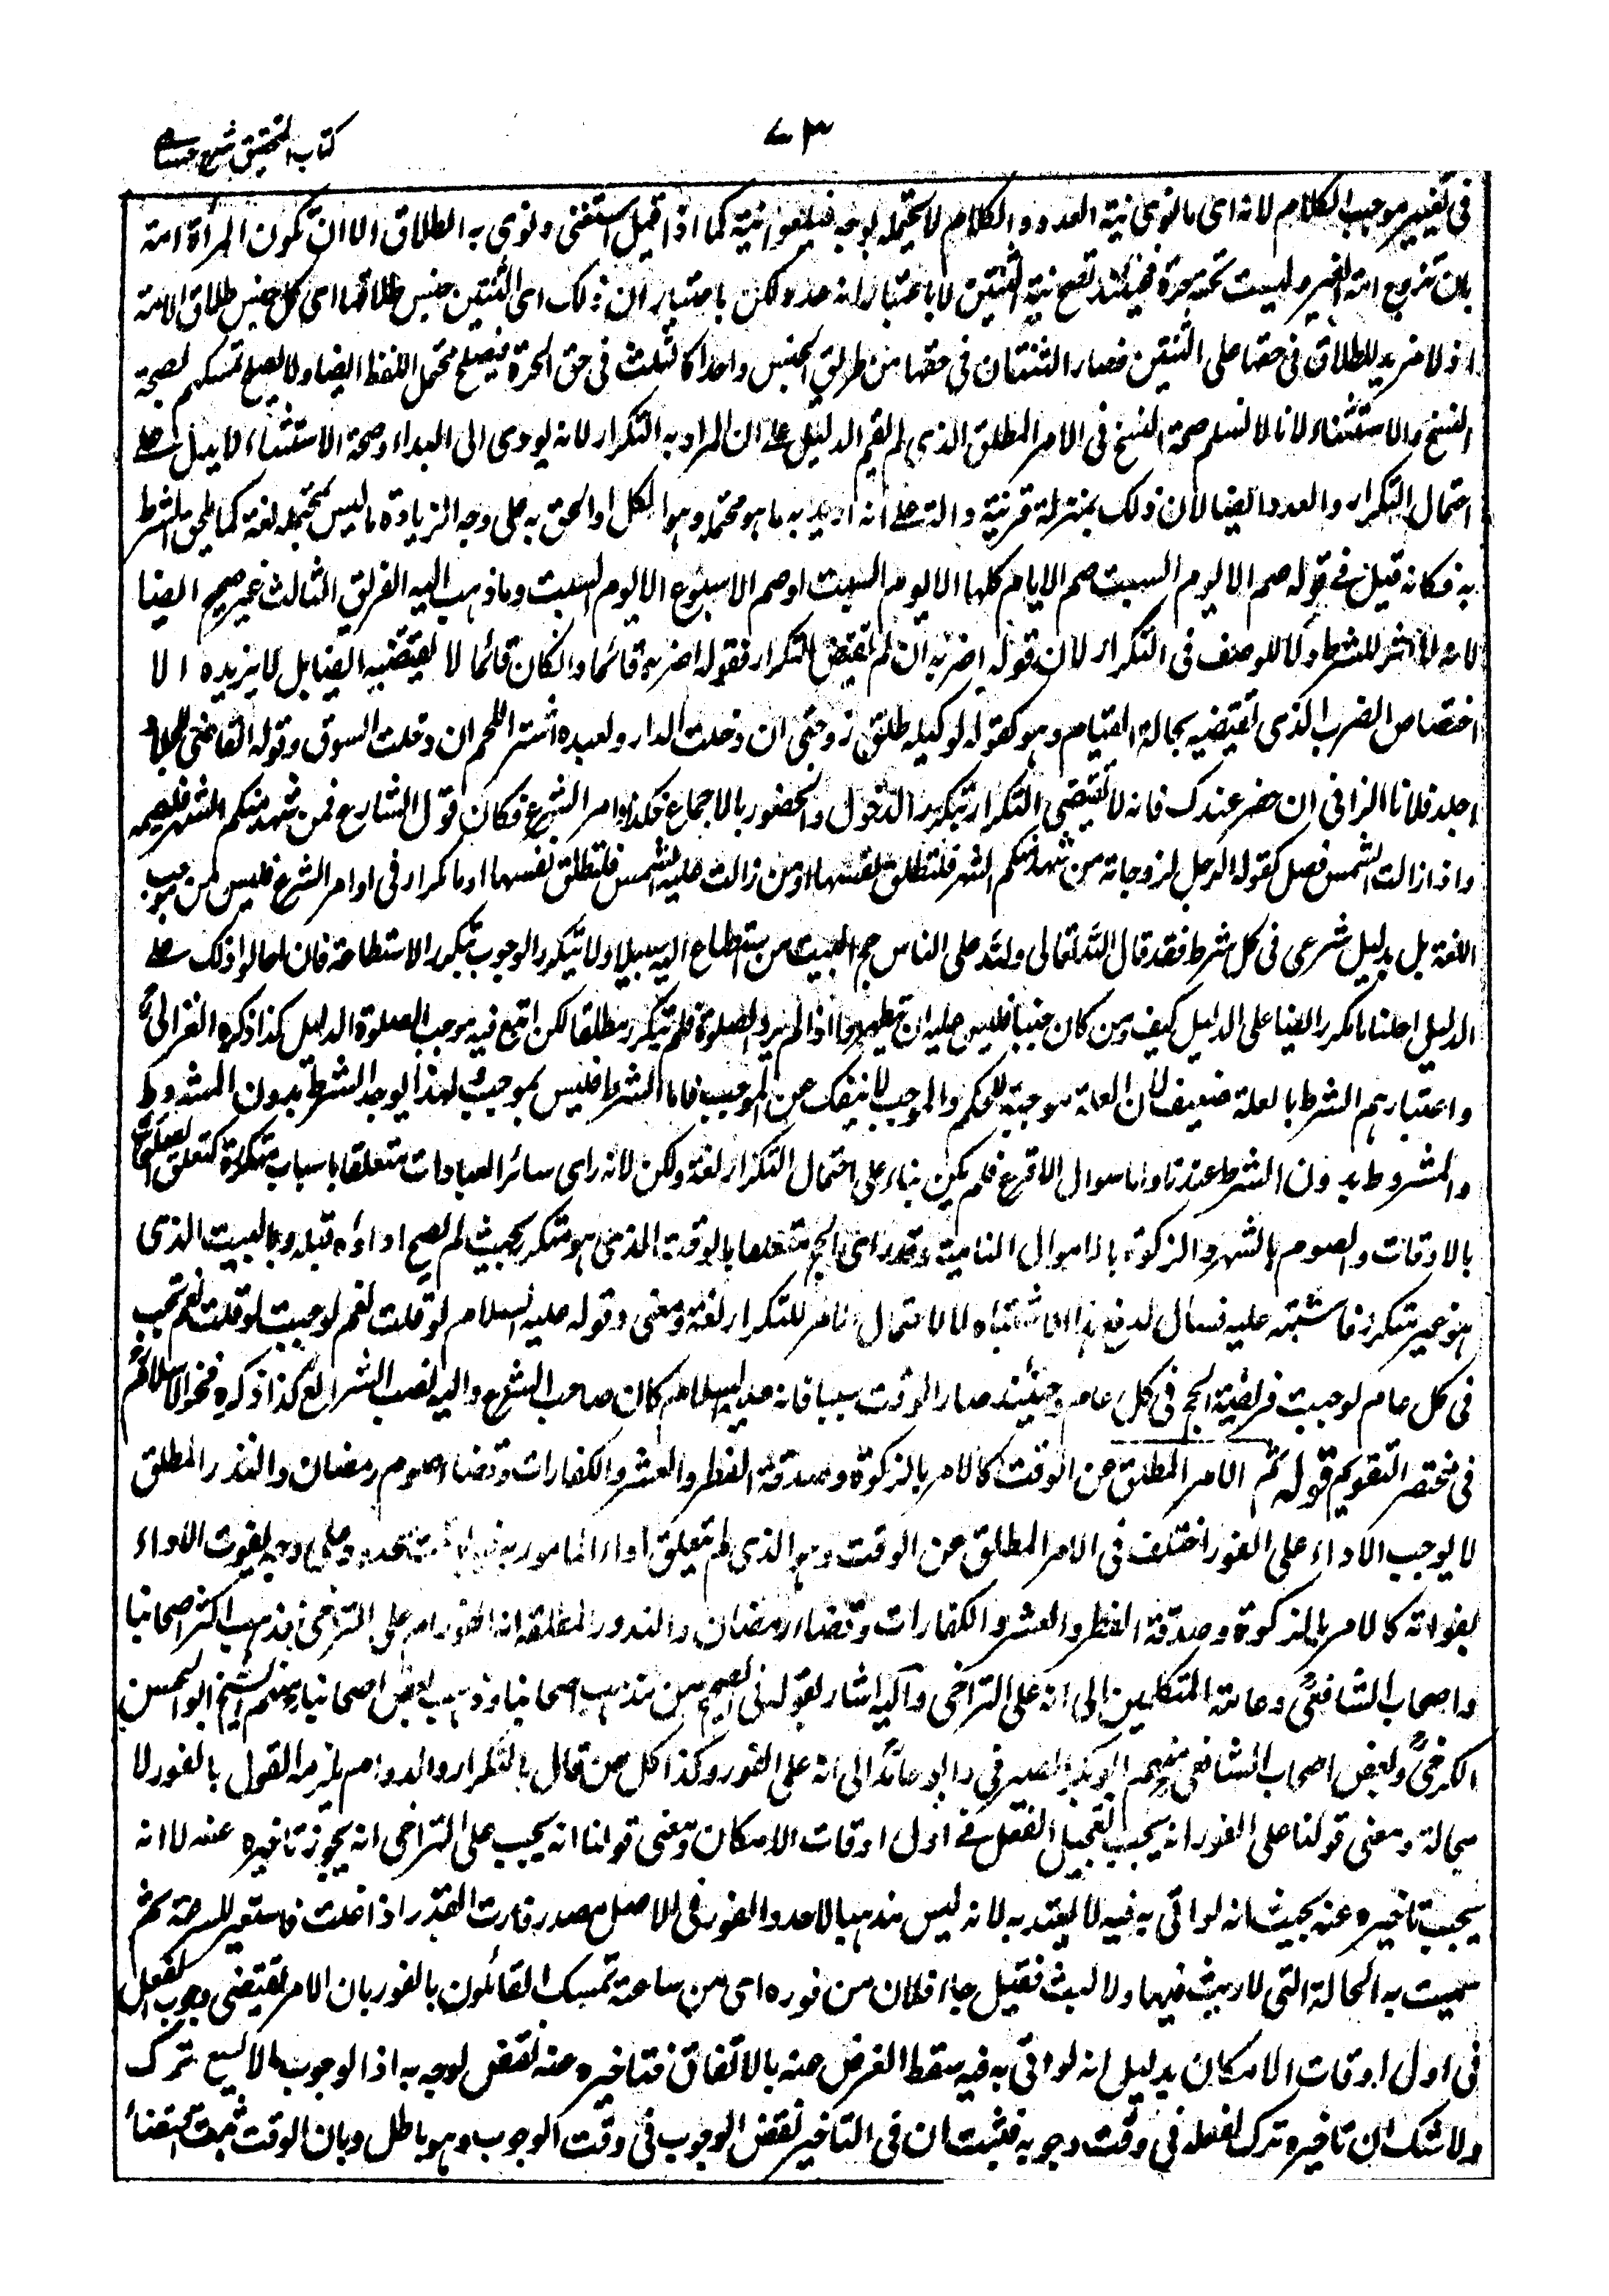 كتاب التحقيق شرح حسامي
٧٣
في تغيير موجب الكلام لانه اى ما نوى نية العدد والكلام لا يحتمله بوجه فيلغو نيته كما اذا قيل استغنى ونوى به الطلاق الا ان تكون المرأة امة
بان تزوج امة الغير وليست تحته حرة فحينئذ تصح نية الثنتين لا باعتبار انه عدد ولكن باعتبار ان ذلك اى الثنتين جنس طلاقها اى كل جنس طلاق الامة
اذ لا مزيد للطلاق في حقها على الثنتين فصار الثنتان في حقها من طريق الجنس واحدا كالثلث في حق الحرة فيصلح محتمل اللفظ ايضا ولا يصح تمسكهم بصحة
الفسخ والاستثناء لانا لا نسلم صحة الفسخ في الامر المطلق الذي لم يقم الدليل على ان المراد به التكرار لانه يودى الى البداء وصحة الاستثناء لا يدل على
احتمال التكرار والعدد ايضا لان ذلك بمنزلة قرينة دالة على انه اريد به ما هو محتمله وهو الكل او الحق به على وجه الزيادة ما ليس بمحتمله لغة كما يلحق الشرط
به فكانه قيل في قوله صم الا يوم السبت صم الايام كلها الا يوم السبت او صم الاسبوع الا يوم السبت وما ذهب اليه الفريق الثالث غير صحيح ايضا
لانه لا اثر للشرط ولا للوصف في التكرار لان قوله اضربه ان لم يقتض التكرار فقوله اضربه قائما وان كان قائما لا يقتضيه ايضا بل لا يزيده الا
اختصاص الضرب الذى يقتضيه بحالة القيام وهو كقوله لوكيله طلق زوجتى ان دخلت الدار ولعبده اشتر اللحم ان دخلت السوق وقوله القاضى للجلاد
اجلد فلانا الزانى ان حضر عندك فانه لا يقتضى التكرار بتكرر الدخول والحضور بالاجماع فكذا اوامر الشرع فكان قول الشارع فمن شهد منكم الشهر فليصمه
واذا زالت الشمس فصل كقول الرجل لزوجاته من شهد منكم الشهر فلتطلق نفسها او من زالت عليها الشمس فلتطلق نفسها اما تكرار في اوامر الشرع فليس من موجب
اللغة بل بدليل شرعى في كل شرط فقد قال الله تعالى ولله على الناس حج البيت من استطاع اليه سبيلا ولا يتكرر الوجوب بتكرر الاستطاعة فان احالوا ذلك على
الدليل احلنا ما تكرر ايضا على الدليل كيف ومن كان جنبا فليس عليه ان يتطهر اذا لم يرد الصلوة فلم يتكرر مطلقا لكن اتبع فيه موجب الصلوة الدليل كذا ذكره الغزالى
واعتبارهم الشرط بالعلة ضعيف لان العلة موجبة للحكم والموجب لا ينفك عن الموجب فاما الشرط فليس بموجب لهذا يوجد الشرط بدون المشروط
والمشروط بدون الشرط عندنا واما سوال الاقرع فلم يكن بناء على احتمال التكرار لغة ولكن لانه راى سائر العبادات متعلقا باسباب متكررة كتعلق الصلوة
بالاوقات والصوم بالشهر والزكوة بالاموال النامية وقد راى الحج متعلقا بالوقت الذى هو متكرر بحيث لم يصح اداؤه قبله وبالبيت الذى
هو غير متكرر فاشتبه عليه فسال لدفع هذا الاشتباه لا لاحتمال الامر للتكرار لغة ومعنى وقوله عليه السلام لو قلت نعم لوجبت لو قلت نعم تجب
في كل عام لوجبت فريضة الحج في كل عام وحينئذ صار الوقت سببا فانه عليه السلام كان صاحب الشرع واليه نصب الشرائع كذا ذكره فخر الاسلام
في مختصر التقويم قوله ثم الامر المطلق عن الوقت كالامر بالزكوة وصدقة الفطر والعشر والكفارات وقضاء صوم رمضان والنذر المطلق
لا يوجب الاداء على الفور اختلف في الامر المطلق عن الوقت وهو الذى لم يتعلق اداء المامور به فيه بوقت محدود على وجه يفوت الاداء
بفواته كالامر بالزكوة وصدقة الفطر والعشر والكفارات وقضاء رمضان والنذور المطلقة انه للفور ام على التراخى فذهب اكثر اصحابنا
واصحاب الشافعى وعامة المتكلمين الى انه على التراخى واليه اشار بقوله في الصحيح من مذهب اصحابنا وذهب بعض اصحابنا منهم الشيخ ابو الحسن
الكرخى وبعض اصحاب الشافعى منهم ابو بكر الصيرفى وابو حامد الى انه على الفور وكذا كل من قال بالتكرار والدوام يلزمه القول بالفور لا
محالة ومعنى قولنا على الفور انه يجب تعجيل الفعل في اول اوقات الامكان ومعنى قولنا انه يجب على التراخى انه يجوز تاخيره عنه لا انه
يجب تاخيره عنه بحيث انه لو اتى به فيه لا يعتد به لانه ليس مذهبا لاحد والفور في الاصل مصدر فارت القدر اذا غلت فاستعير للسرعة ثم
سميت به الحالة التى لا ريث فيها ولا لبث فقيل جاء فلان من فوره اى من ساعته تمسك القائلون بالفور بان الامر يقتضى وجوب الفعل
في اول اوقات الامكان بدليل انه لو اتى به فيه سقط الفرض عنه بالاتفاق فتاخيره عنه نقض لوجوبه اذ الوجوب ما لا يسع تركه
ولا شك ان تاخيره ترك لفعله في وقت وجوبه فثبت ان في التاخير نقض الوجوب في وقت الوجوب وهو باطل وبان الوقت ثبت اقتضاء